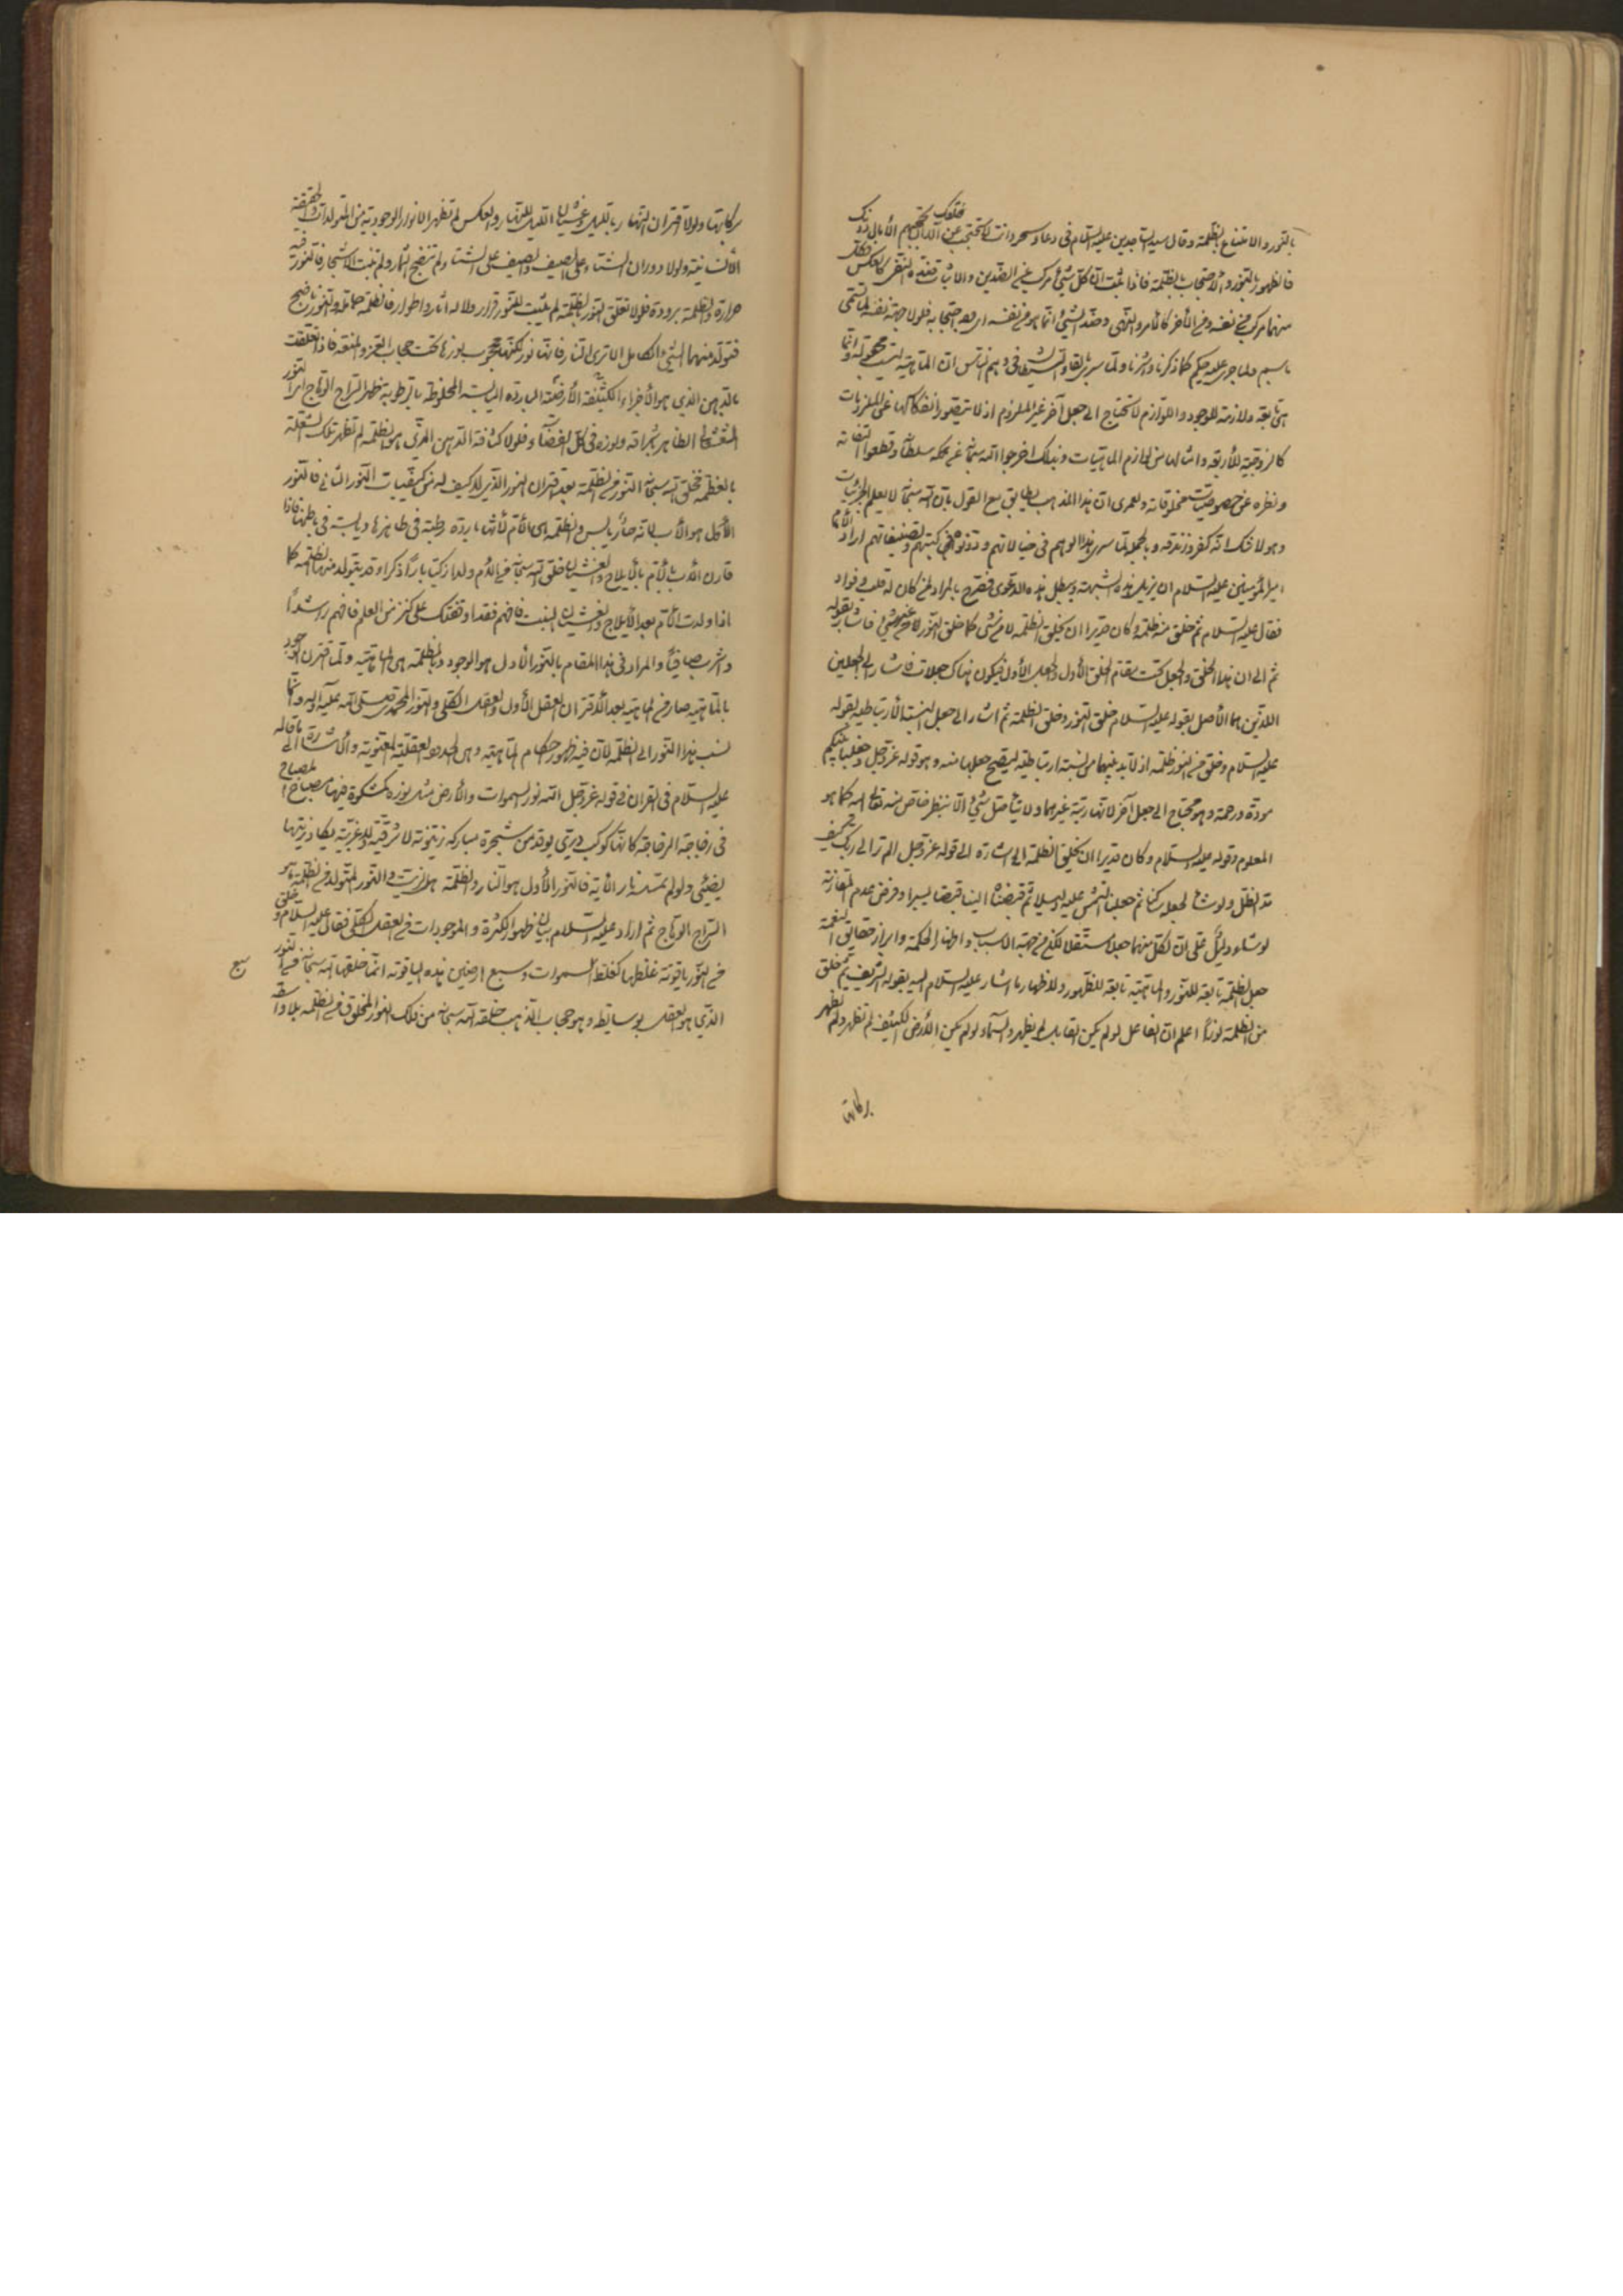 بالنور والامتناع بالظلمة وقال سيد الساجدين عليه السلام في دعاء سحر وانت لا تحتجب عن خلقك الا ان تحجبهم الآمال دونك
فالظهور بالنور والاحتجاب بالظلمة فاذا ثبت ان كل شيء مركب من الضدين والاثبات ضده النفي وكذلك العكس
منهما مركب في نفسه وفي الآخر كالامر والنهي وضد الشيء انما هو في نفسه اي وجه احتجابه فلولا جهة نفسه لما تسمى
باسم ولما جرى عليه حكم كما ذكرنا واشرنا ولما سرى بالقاء الشيطان في وهم الناس ان الماهية ليست مجعولة وانما
هي تابعة ولازمة للوجود واللوازم لا تحتاج الى جعل آخر غير الملزوم اذ لا يتصور انفكاكها عن الملزومات
كالزوجية للأربعة وامثالها من لوازم الماهيات وبذلك اخرجوا الله سبحانه عن ملكه سلطانه وقطعوا التفاته
ونظره عن خصوصيات مخلوقاته ولعمري ان هذا المذهب يطابق مع القول بان الله سبحانه لا يعلم الجزئيات
وهو لا شك انه كفر وزندقة وبالجملة لما سرى هذا الوهم في خيالاتهم ودونوه في كتبهم وتصنيفاتهم اراد الامام
امير المؤمنين عليه السلام ان يزيل هذه الشبهة ويبطل هذه الدعوى فصرح بالمراد لمن كان له قلب وفؤاد
فقال عليه السلام ثم خلق منه ظلمة وكان قديرا ان يخلق الظلمة لا من شيء كما خلق النور لا من شيء فاشار بقوله
ثم الى ان هذا الخلق والجعل تحت مقام الخلق الأول والجعل الأول فيكون هناك جعلات فاشار الى الجعلين
اللذين هما الأصل بقوله عليه السلام خلق النور وخلق الظلمة ثم اشار الى جعل النسبة الأرتباطية بقوله
عليه السلام وخلق من النور ظلمة اذ لا بد بينهما من نسبة ارتباطية ليصح جعلها منه وهو قوله عز وجل وجعلنا بينكم
مودة ورحمة وهو محتاج الى جعل آخر لانها رتبة غيرهما ولا يتأصل شيء الا بنظر خاص منه تعالى اليه كما هو
المعلوم وقوله عليه السلام وكان قديرا ان يخلق الظلمة الى اشارة الى قوله عز وجل الم تر الى ربك كيف
مد الظل ولو شاء لجعله ساكنا ثم جعلنا الشمس عليه دليلا ثم قبضناه الينا قبضا يسيرا وفرض عدم المقارنة
لو شاء دليل على ان لكل منهما جعلا مستقلا لكن من جهة الاسباب واظهار الحكمة وابراز حقايق النعمة
جعل الظلمة تابعة للنور والماهية تابعة للظهور والاظهار ما اشار عليه السلام اليه بقوله الشريف ثم خلق
من الظلمة نورا اعلم ان الفاعل لو لم يكن القابل لم يظهر والسماء لو لم يكن الأرض الكثيف لم تظهر ولم تظهر
بركاتها
بركاتها ولولا اقتران النهار بالليل وغشيان الليل النهار وبالعكس لم تظهر الانوار الوجودية من المتولدات والحقيقة
الانسانية ولولا دوران الشتاء على الصيف والصيف على الشتاء ولم تنضج الثمار ولم تنبت الاشجار فالنور فيه
حرارة والظلمة برودة فلولا تعلق النور بالظلمة لم يثبت للنور قرار ولا له آثار واطوار فالظلمة حاملة والنور ناضج
فتولد منهما الشيء الكامل الا ترى النار فانها نور لكنها تحجب بنورها تحت حجاب العز والمنعة فاذا تعلقت
بالدهن الذي هو الأجزاء الكثيفة الأرضية الباردة اليابسة المخلوطة بالرطوبة ظهر السراج الوهاج امرا لنور
الشعشعاني الظاهر باشراقه ونوره في كل الفضاء فلولا كثافة الدهن المرئي هو الظلمة لم تظهر تلك الشعلة
بالعظمة فخلق الله سبحانه النور من الظلمة بعد اقتران النور الذي لا كيف له من كيفيات النور الثاني فالنور
الأول هو الأب لانه حار يابس والظلمة هي الأم لأنها باردة رطبة في ظاهرها ويابسة في باطنها فاذا
قارن الأب بالأم بالايلاج والغشيان خلق الله سبحانه من الأم ولدا زكيا بارا ذكرا وقد يتولد منهما الظلمة كما
اذا ولدت الأم بعد الايلاج والغشيان البنت فافهم فقد اوقفتك على كنز من العلم فافهم راشدا
واشرب صافيا والمراد في هذا المقام بالنور الأول هو الوجود وبالظلمة هي الماهية ولما اقترن الوجود
بالماهية صار في الماهية بعد الاقتران العقل الأول والعقل الكلي والنور المحمدي صلى الله عليه وآله وانما
نسب هذا النور الى الظلمة لأن فيه ظهور احكام الماهية وهي الحدود العقلية المعنوية والاشارة الى ما قاله
عليه السلام في القرآن في قوله عز وجل الله نور السموات والأرض مثل نوره كمشكوة فيها مصباح المصباح
في زجاجة الزجاجة كانها كوكب دري يوقد من شجرة مباركة زيتونة لا شرقية ولا غربية يكاد زيتها
يضيئ ولو لم تمسسه نار الآية فالنور الأول هو النار والظلمة هو الزيت والنور المتولد من الظلمة هو
السراج الوهاج ثم اراد عليه السلام بيان ظهور الكثرة والموجودات في العقل الكلي فقال عليه السلام وخلق
من النور ياقوتة غلظها كغلظ السموات وسبع ارضين هذه الياقوتة انما خلقها الله سبحانه من النور
الذي هو العقل بوسايط وهو حجاب الذهب خلقه الله سبحانه من ذلك النور المخلوق من الظلمة بلا واسطة